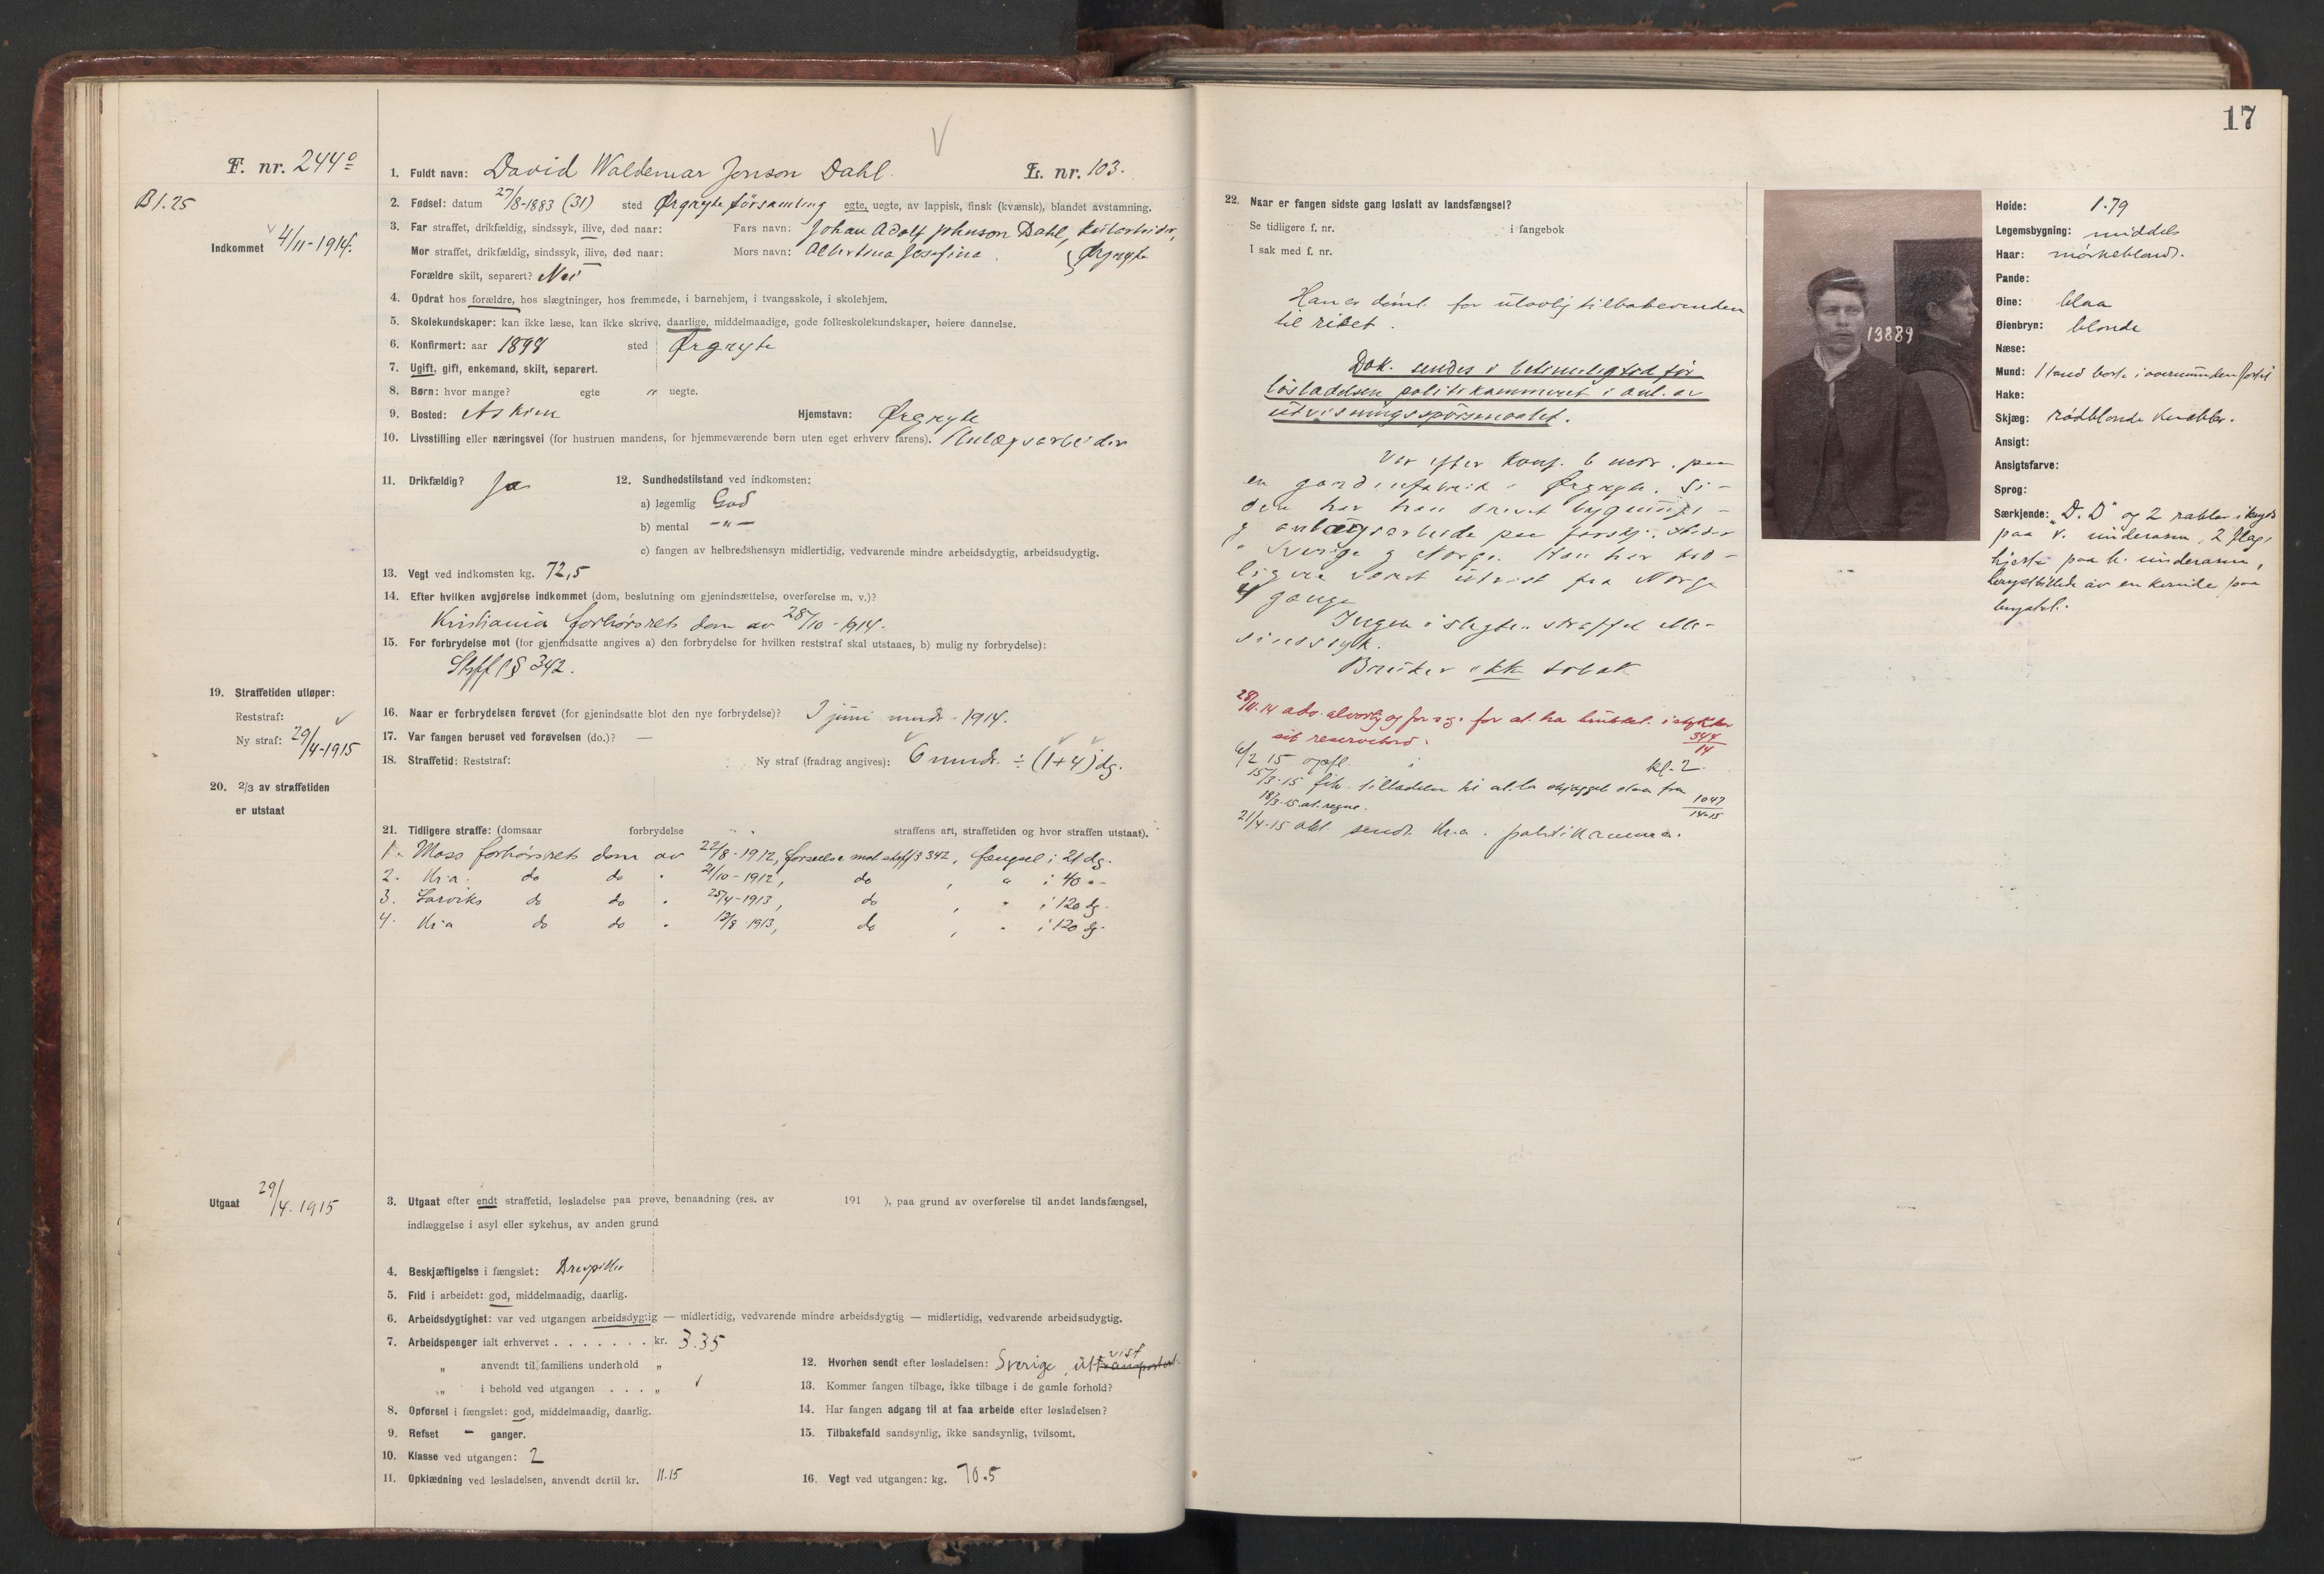 17
F. nr. 244º
B 1.25
Indkommet 4/11-1914.
1. Fuldt navn: David Waldemar Jonson Dahl. L. nr. 103.
2. Fødsel: datum 27/8-1883 (31) sted Ørgryte församling egte, uegte, av lappisk, finsk (kvænsk), blandet avstamning.
3. Far straffet, drikfældig, sindssyk, ilive, død naar: Fars navn: Johan Adolf Johnson Dahl,
Mor straffet, drikfældig, sindssyk, ilive, død naar: Mors navn: Albertina Josefina. Ørgryte
Forældre skilt, separert? Nei
4. Opdrat hos forældre, hos slægtninger, hos fremmede, i barnehjem, i tvangsskole, i skolehjem.
5. Skolekundskaper: kan ikke læse, kan ikke skrive, daarlige, middelmaadige, gode folkeskolekundskaper, høiere dannelse.
6. Konfirmert: aar 1898 sted Ørgryte
7. Ugift, gift, enkemand, skilt, separert.
8. Børn: hvor mange? egte " uegte.
9. Bosted: Askim Hjemstavn: Ørgryte
10. Livsstilling eller næringsvei (for hustruen mandens, for hjemmeværende børn uten eget erhverv farens). Anlægsarbeider
11. Drikfældig? Ja 12. Sundhedstilstand ved indkomsten:
a) legemlig God
b) mental —"—
c) fangen av helbredshensyn midlertidig, vedvarende mindre arbeidsdygtig, arbeidsudygtig.
13. Vegt ved indkomsten kg. 72,5
14. Efter hvilken avgjørelse indkommet (dom, beslutning om gjenindsættelse, overførelse m. v.)?
Kristiania forhørsrets dom av 28/10-1914.
15. For forbrydelse mot (for gjenindsatte angives a) den forbrydelse for hvilken reststraf skal utstaaes, b) mulig ny forbrydelse):
Stffl § 342.
19. Straffetiden utløper:
Reststraf:
Ny straf: 29/4-1915
16. Naar er forbrydelsen forøvet (for gjenindsatte blot den nye forbrydelse)? I juni mndr. 1914.
17. Var fangen beruset ved forøvelsen (do.)? —
18. Straffetid: Reststraf: Ny straf (fradrag angives): 6 mndr. ÷ (1+4) dg.
20. 2/3 av straffetiden
er utstaat
21. Tidligere straffe: (domsaar forbrydelse straffens art, straffetiden og hvor straffen utstaat).
1. Moss forhørsrets dom av 22/8-1912, forseelse mot stffl § 342, fængsel i 21 dg.
2. Kr.a. do do " 21/10-1912, do , " i 40 "-
3. Larviks do do " 25/4-1913, do , " i 120 dg.
4. Kr.a do do " 12/8 1913, do , " i 120 dg.
Utgaat 29/4. 1915
3. Utgaat efter endt straffetid, løsladelse paa prøve, benaadning (res. av 191 ), paa grund av overførelse til andet landsfængsel,
indlæggelse i asyl eller sykehus, av anden grund
4. Beskjæftigelse i fængslet: Drevpikker
5. Flid i arbeidet: god, middelmaadig, daarlig.
6. Arbeidsdygtighet: var ved utgangen arbeidsdygtig — midlertidig, vedvarende mindre arbeidsdygtig — midlertidig, vedvarende arbeidsudygtig.
7. Arbeidspenger ialt erhvervet . . . . . . . kr. 3.35
" anvendt til familiens underhold "
" i behold ved utgangen . . . "
8. Opførsel i fængslet: god, middelmaadig, daarlig.
9. Refset - ganger.
10. Klasse ved utgangen: 2
11. Opklædning ved løsladelsen, anvendt dertil kr. 11.15
12. Hvorhen sendt efter løsladelsen: Sverige, utvist
13. Kommer fangen tilbage, ikke tilbage i de gamle forhold?
14. Har fangen adgang til at faa arbeide efter løsladelsen?
15. Tilbakefald sandsynlig, ikke sandsynlig, tvilsomt.
16. Vegt ved utgangen: kg. 70.5
22. Naar er fangen sidste gang løslatt av landsfængsel?
Se tidligere f. nr. i fangebok
I sak med f. nr.
Han er dømt for ulovlig tilbakevenden
til riket.
Dok. sendes i betimelig tid før
løsladelsen politikammeret i anl. av
utvisningsspørsmaalet.
Var efter konf. 6 mdr. paa
en gardinfabrik i Ørgryte. Si-
den har han drevet bygnings-
og anlægsarbeide paa forskj. steder
i Sverige og Norge. Han har tid-
ligere været utvist fra Norge
4 gange
Ingen i slegten straffet eller
sindssyk.
Bruker ikke tobak
28/11.14 adv. alvorlig og for at ha brukket i stykker
sit reservebord. 344/14
6/2 15 opfl. " kl. 2.
15/3.15 tilladelse til at la skjægget staa fra
18/3.15 at regne. 1047/14-15
21/4.15 akt. sendt Kr.a. politikammer.
13889
Høide: 1.79
Legemsbygning: middels
Haar: mørkeblondt.
Pande:
Øine: blaa
Øienbryn: blonde
Næse:
Mund: 1 tand borte i overmunden fortil
Hake:
Skjæg: rødblonde knebler.
Ansigt:
Ansigtsfarve:
Sprog:
Særkjende: "D. D" og 2 sabler i kryds
paa v. underarm, 2 flag,
hjerte paa h. underarm,
brystbillede av en kvinde paa
brystet.